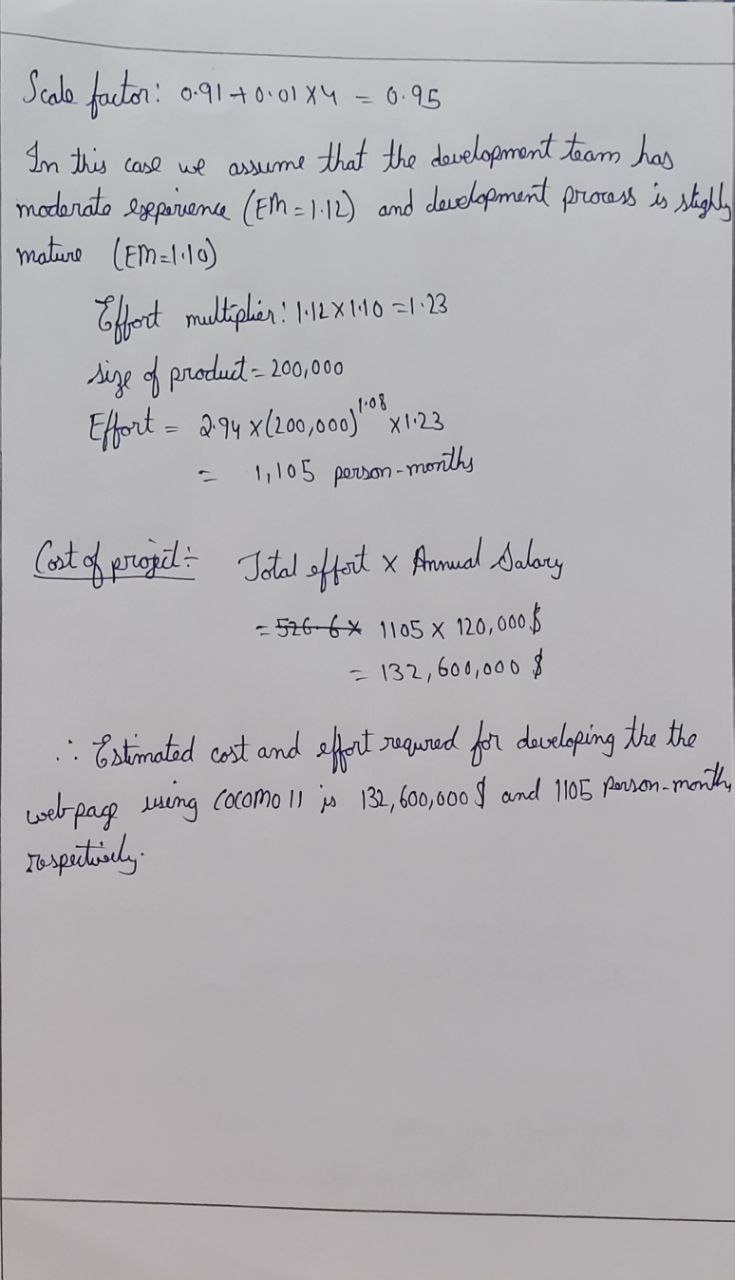 Scale factor: 0.91 + 0.01 X 4 = 0.95
In this case we assume that the development team has
moderate experience (EM = 1.12) and development process is slighly
mature (EM=1.10)
Effort multiplier: 1.12 X 1.10 = 1.23
size of product = 200,000
Effort = 2.94 x (200,000)^1.08 x 1.23
= 1,105 person-months
Cost of project:- Total effort x Annual Salary
= 526.6 x 1105 x 120,000 $
= 132,600,000 $
∴ Estimated cost and effort requred for developing the the
webpage using COCOMO II is 132,600,000 $ and 1105 Person-month
respectively.